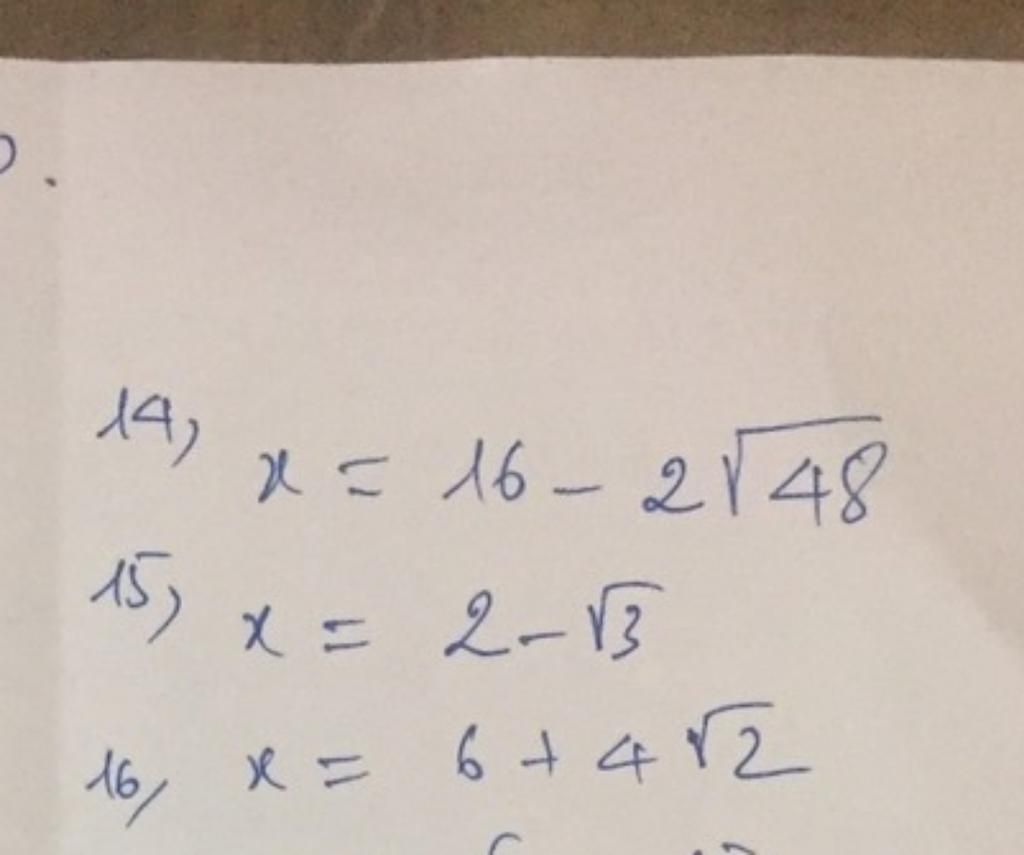 14, x = 16 - 2√48
15, x = 2 - √3
16, x = 6 + 4√2